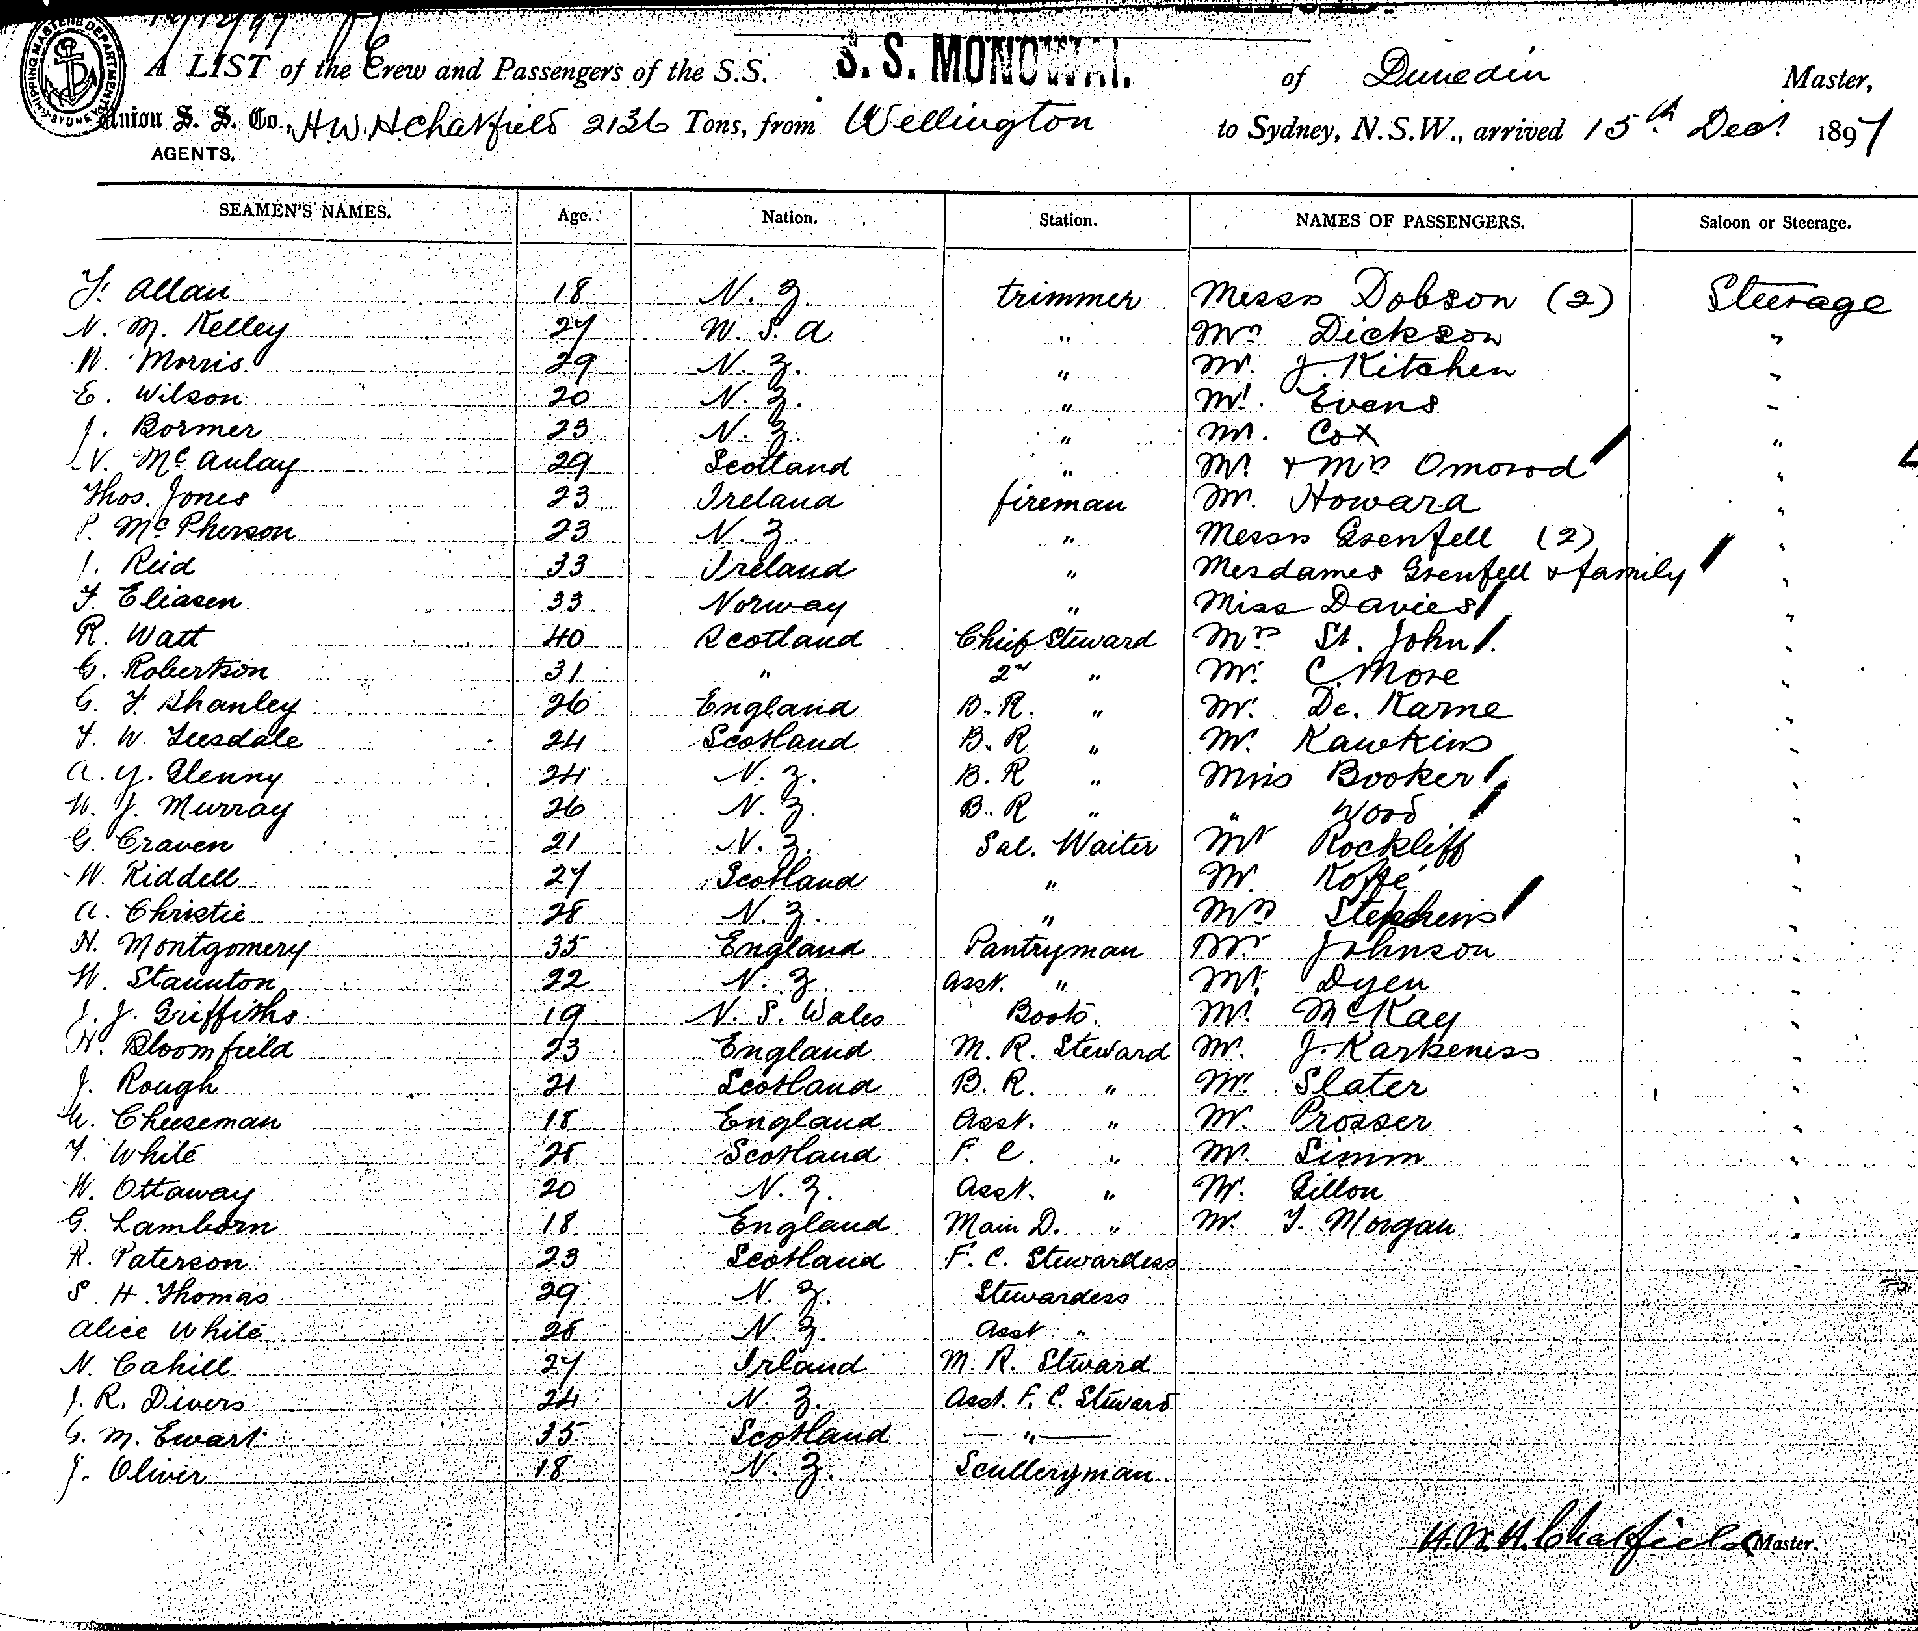 SHIPPING MASTER'S DEPARTMENT SYDNEY
A LIST of the Crew and Passengers of the S.S. S. S. MONOWAI. of Dunedin Master,
Union S. S. Co., H.W.H Chatfield 2136 Tons, from Wellington to Sydney, N.S.W., arrived 15th Decr 1897
AGENTS.
SEAMEN'S NAMES. Age. Nation. Station. NAMES OF PASSENGERS. Saloon or Steerage.
F. Allan 18 N. Z. trimmer Messrs Dobson (2) Steerage
N. M. Kelley 27 U. S. A " Mrs Dickson "
W. Morris 29 N. Z. " Mr. J. Kitchen "
E. Wilson 20 N. Z. " Mr. Evens "
J. Bormer 23 N. Z. " Mr. Cox "
W. McAulay 29 Scotland " Mr. & Mrs Omorod "
Thos. Jones 23 Ireland fireman Mr. Howard "
P. McPherson 23 N. Z. " Messrs Grenfell (2) "
J. Reid 33 Ireland " Mesdames Grenfell & family "
F. Eliasen 33 Norway " Miss Davies "
R. Watt 40 Scotland Chief Steward Mrs St. John "
G. Robertson 31 " 2nd " Mr. C. More "
G. F. Shanley 26 England B. R. " Mr. De. Karne "
F. W. Teesdale 24 Scotland B. R " Mr. Hawkins "
A. Y. Glenny 24 N. Z. B. R " Miss Booker "
W. J. Murray 26 N. Z. B. R " " Wood "
G. Craven 21 N. Z. Sal. Waiter Mr Rockliff "
W. Riddell 27 Scotland " Mr. Koffe "
A. Christie 28 N. Z. " Mrs Stephens "
H. Montgomery 35 England Pantryman Mr Johnson "
W. Staunton 22 N. Z. Asst. " Mr. Dyen "
J. J. Griffiths 19 N. S. Wales Boots. Mr. McKay "
H. Bloomfield 23 England M. R. Steward Mr. J. Karkeness "
J. Rough 21 Scotland B. R. " Mr. Slater "
Cheeseman 18 England Asst. " Mr. Prosser "
F. White 28 Scotland F. C. " Mr. Simm "
W. Ottaway 20 N. Z. Asst. " Mr. Gillon "
G. Lamborn 18 England Main D. " Mr. T. Morgan "
R. Paterson 23 Scotland F. C. Stewardess
S. H. Thomas 29 N. Z. Stewardess
Alice White 28 N. Z. Asst "
N. Cahill 27 Irland M. R. Steward
J. R. Divers 24 N. Z. Asst. F. C. Steward
G. M. Ewart 35 Scotland "
J. Oliver 18 N. Z. Sculleryman
H.W.H. Chatfield Master.